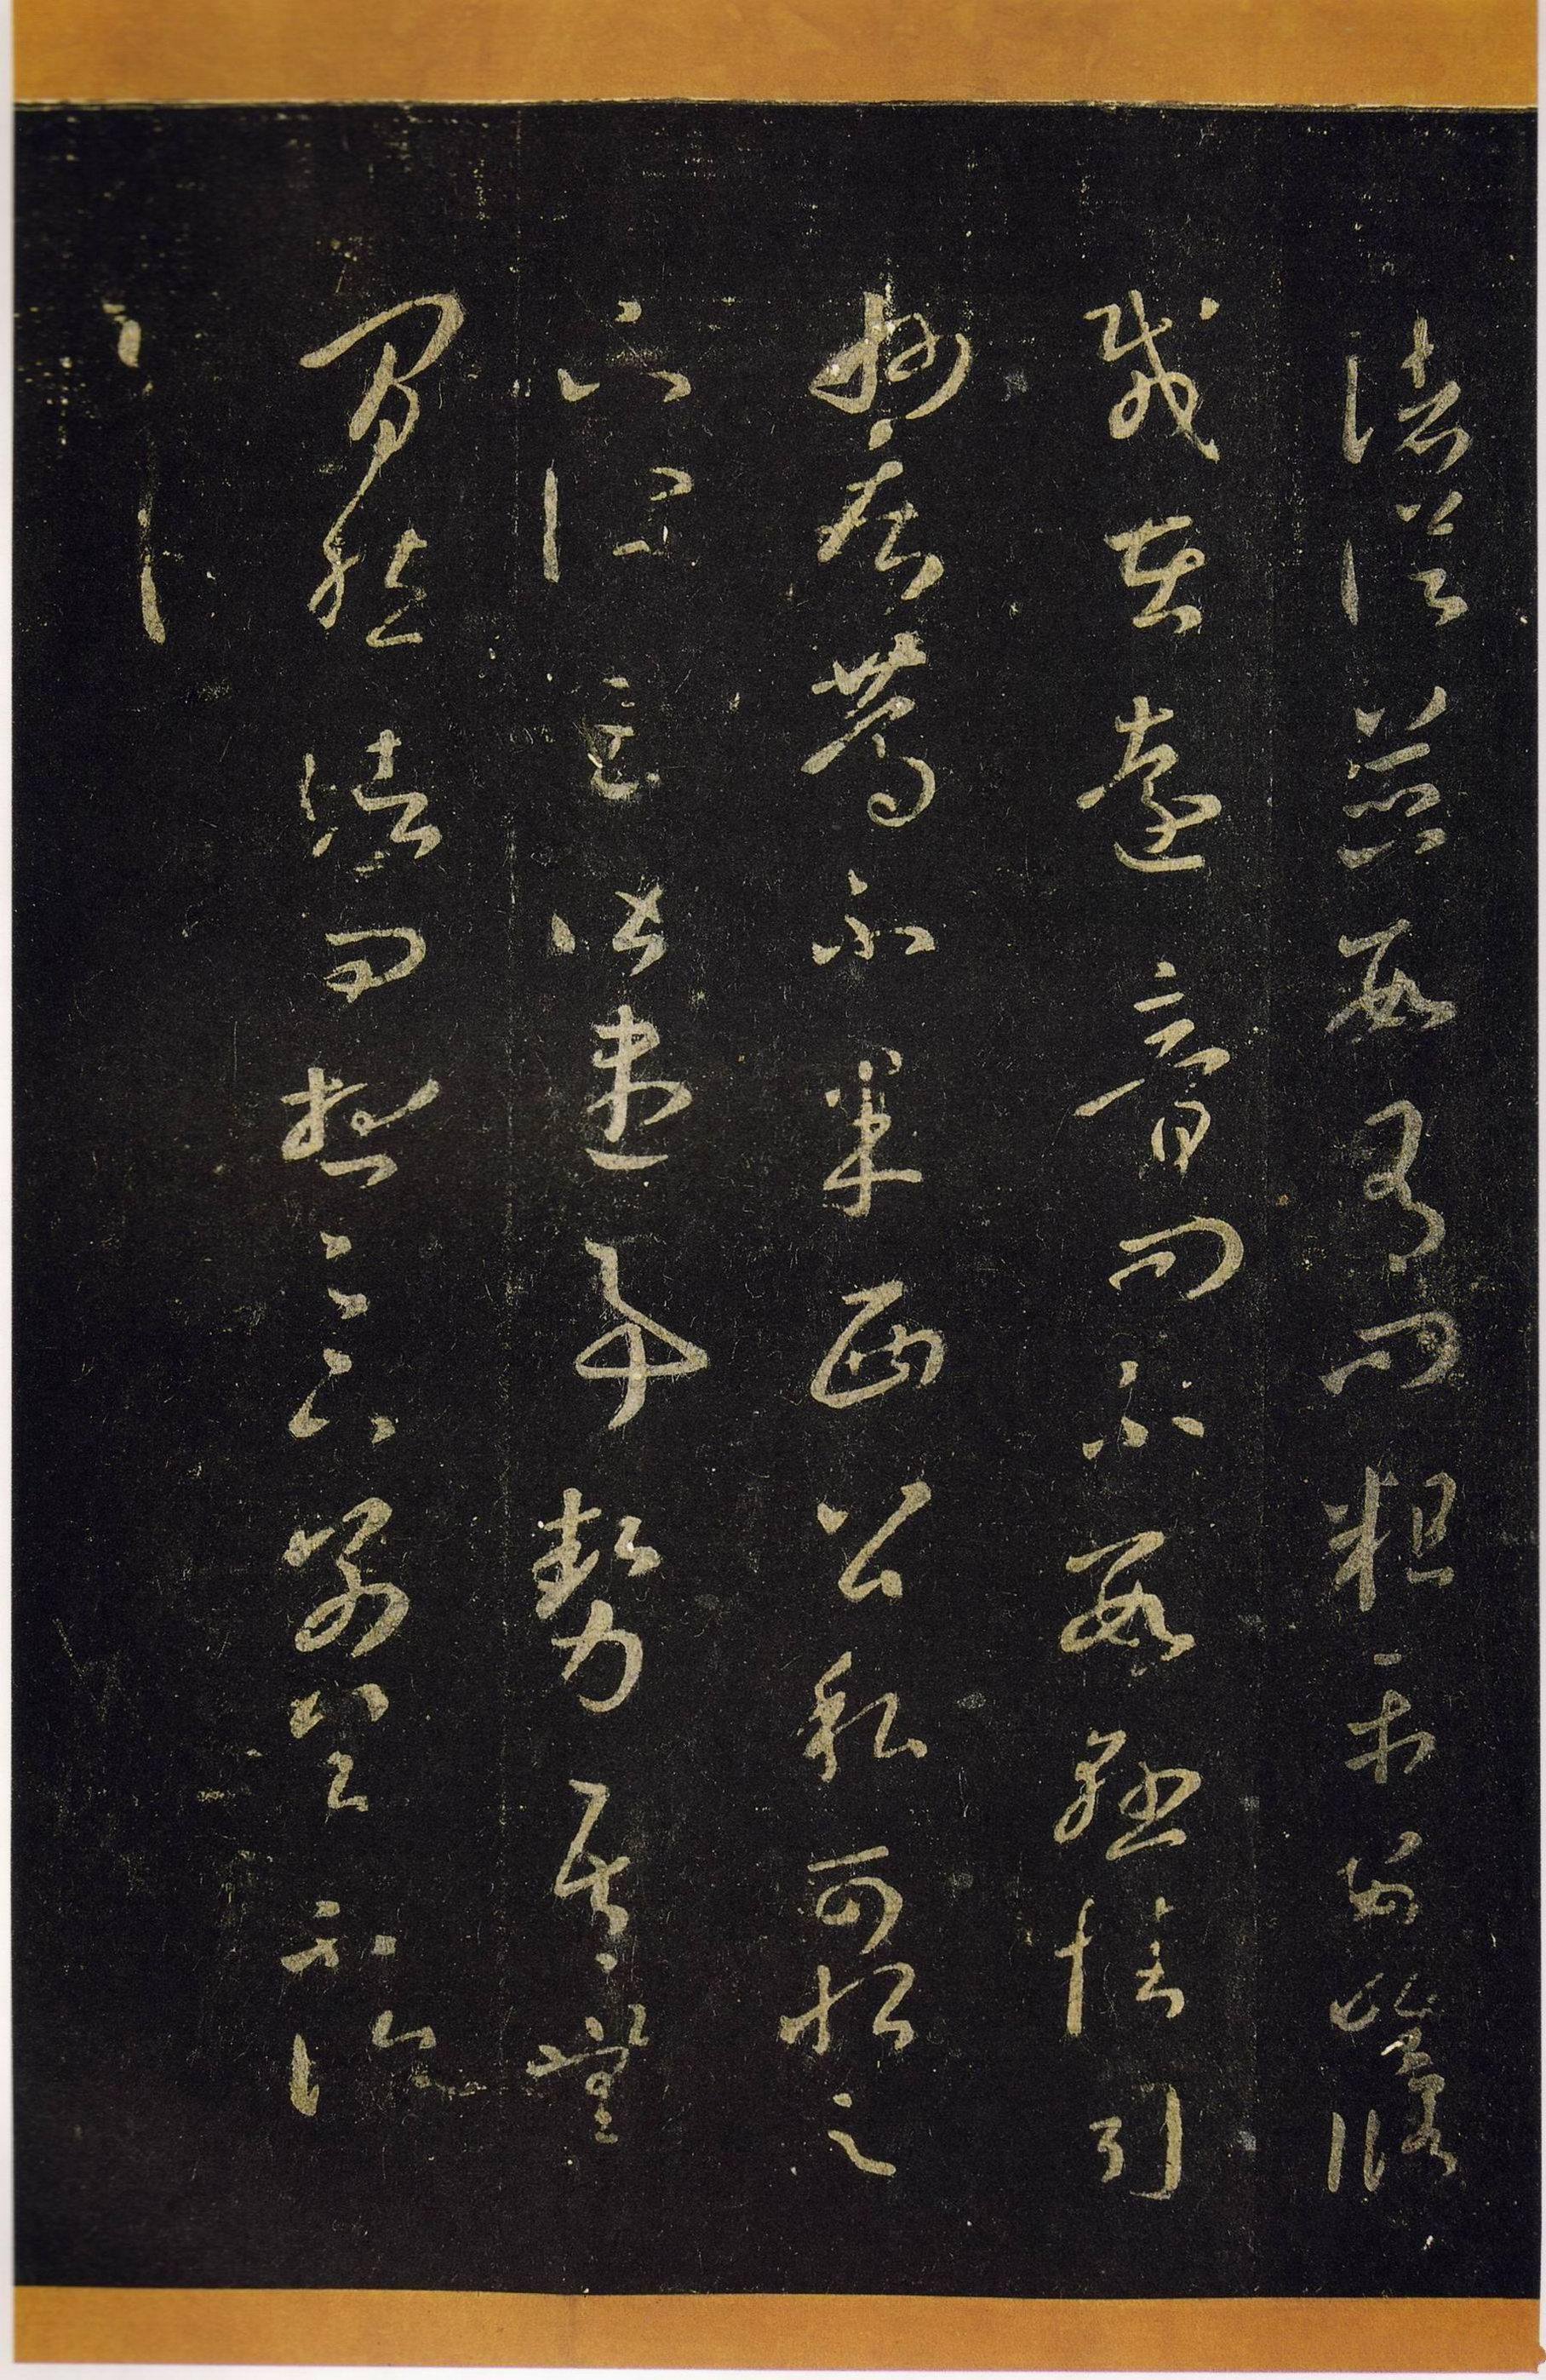 諸從並數有問粗平安唯修
載在遠音問不數懸情司
州疾篤不果西公私可恨足
下所云皆盡事勢吾無
間然諸問想足下別具不復
一一